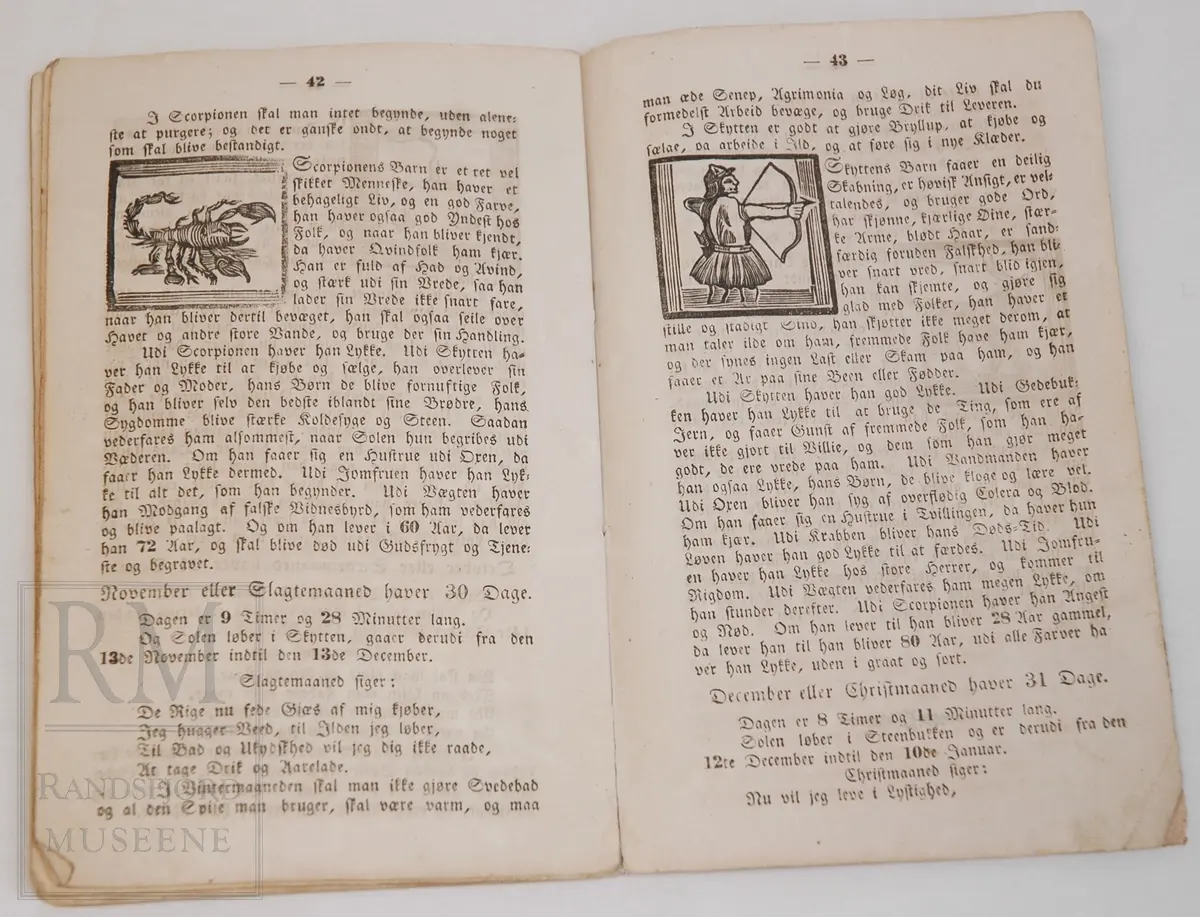 — 42 —
I Scorpionen skal man intet begynde, uden alene-
ste at purgere; og det er ganske ondt, at begynde noget
som skal blive bestandigt.
Scorpionens Barn er et ret vel
skikket Menneske, han haver et
behageligt Liv, og en god Farve,
han haver ogsaa god Yndest hos
Folk, og naar han bliver kjendt,
da haver Qvindfolk ham kjær.
Han er fuld af Had og Avind,
og stærk udi sin Vrede, saa han
lader sin Vrede ikke snart fare,
naar han bliver dertil bevæget, han skal ogsaa seile over
Havet og andre store Vande, og bruge der sin Handling.
Udi Scorpionen haver han Lykke. Udi Skytten ha-
ver han Lykke til at kjøbe og sælge, han overlever sin
Fader og Moder, hans Børn de blive fornuftige Folk,
og han bliver selv den bedste iblandt sine Brødre, hans
Sygdomme blive stærke Koldesyge og Steen. Saadan
vederfares ham alsommest, naar Solen hun begribes udi
Væderen. Om han faaer sig en Hustrue udi Oxen, da
faaer han Lykke dermed. Udi Jomfruen haver han Lyk-
ke til alt det, som han begynder. Udi Vægten haver
han Modgang af falske Vidnesbyrd, som ham vederfares
og blive paalagt. Og om han lever i 60 Aar, da lever
han 72 Aar, og skal blive død udi Gudsfrygt og Tjene-
ste og begravet.
November eller Slagtemaaned haver 30 Dage.
Dagen er 9 Timer og 28 Minutter lang.
Og Solen løber i Skytten, gaaer derudi fra den
13de November indtil den 13de December.
Slagtemaaned siger:
De Rige nu fede Gjæs af mig kjøber,
Jeg hugger Veed, til Ilden jeg løber,
Til Bad og Ukydskhed vil jeg dig ikke raade,
At tage Drik og Aarelade.
I Vintermaaneden skal man ikke gjøre Svedebad
og al den Spise man bruger, skal være varm, og maa
— 43 —
man æde Senep, Agrimonia og Løg, dit Liv skal du
formedelst Arbeid bevæge, og bruge Drik til Leveren.
I Skytten er godt at gjøre Bryllup, at kjøbe og
sælge, og arbeide i Ild, og at føre sig i nye Klæder.
Skyttens Barn faaer en deilig
Skabning, er høvisk Ansigt, er vel-
talendes, og bruger gode Ord,
har skjønne, kjærlige Øine, stær-
ke Arme, blødt Haar, er sand-
færdig foruden Falskhed, han bli-
ver snart vred, snart blid igjen,
han kan skjemte, og gjøre sig
glad med Folket, han haver et
stille og stadigt Sind, han skjøtter ikke meget derom, at
man taler ilde om ham, fremmede Folk have ham kjær,
og der synes ingen Last eller Skam paa ham, og han
faaer et Ar paa sine Been eller Fødder.
Udi Skytten haver han god Lykke. Udi Gedebuk-
ken haver han Lykke til at bruge de Ting, som ere af
Jern, og faaer Gunst af fremmede Folk, som han ha-
ver ikke gjort til Villie, og dem som han gjør meget
godt, de ere vrede paa ham. Udi Vandmanden haver
han ogsaa Lykke, hans Børn, de blive kloge og lære vel.
Udi Oxen bliver han syg af overflødig Colera og Blod.
Om han faaer sig en Hustrue i Tvillingen, da haver hun
ham kjær. Udi Krabben bliver hans Døds-Tid. Udi
Løven haver han god Lykke til at færdes. Udi Jomfru-
en haver han Lykke hos store Herrer, og kommer til
Rigdom. Udi Vægten vederfares ham megen Lykke, om
han stunder derefter. Udi Scorpionen haver han Angest
og Nød. Om han lever til han bliver 28 Aar gammel,
da lever han til han bliver 80 Aar, udi alle Farver ha
ver han Lykke, uden i graat og sort.
December eller Christmaaned haver 31 Dage.
Dagen er 8 Timer og 11 Minutter lang.
Solen løber i Steenbukken og er derudi fra den
12te December indtil den 10de Januar.
Christmaaned siger:
Nu vil jeg leve i Lystighed,
RM
RANDSFJORD
MUSEENE